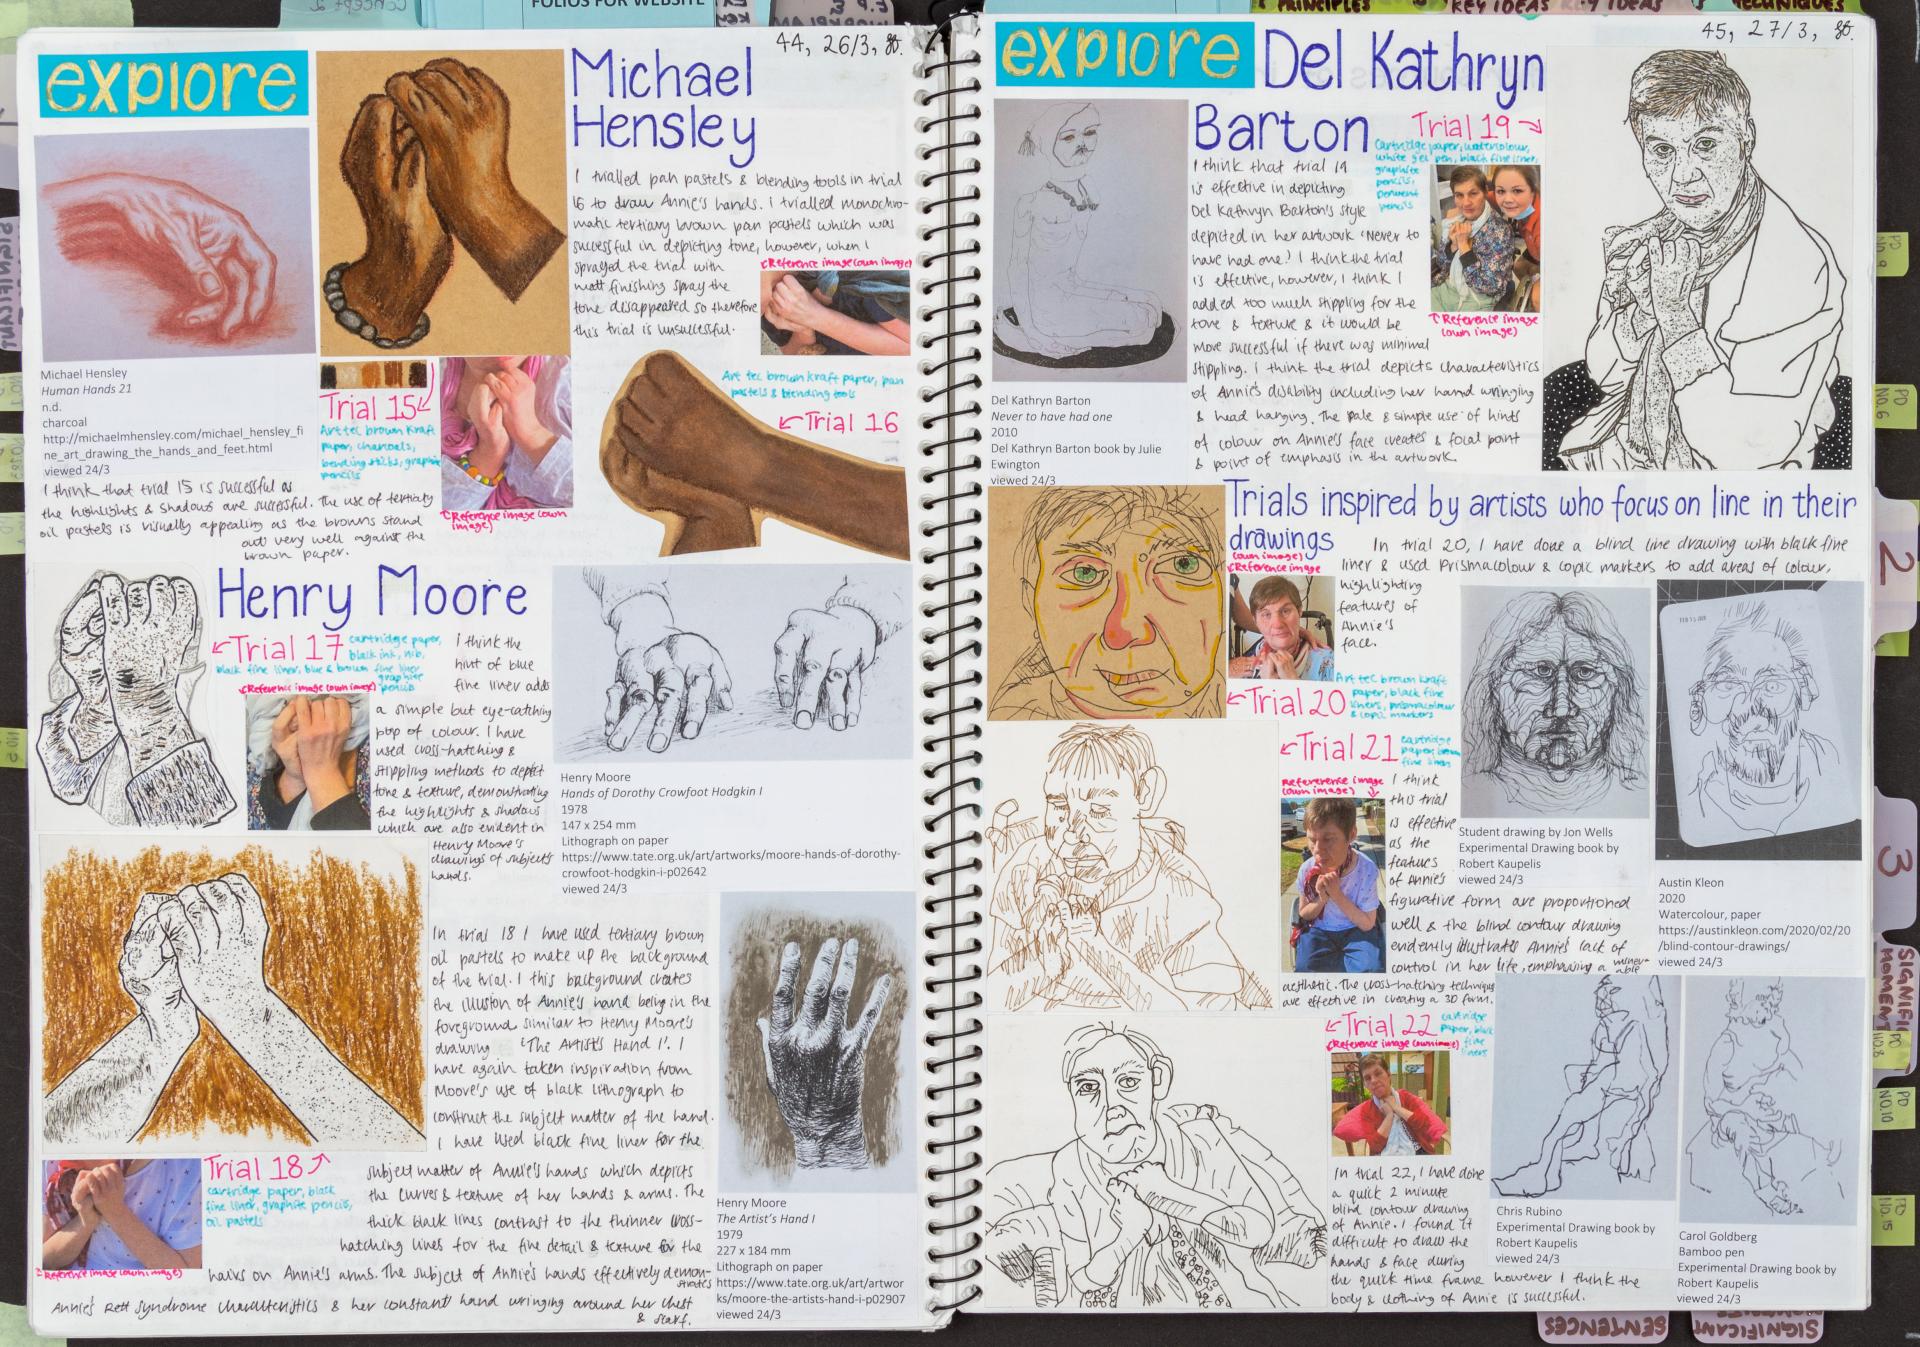 FOLIOS FOR WEBSITE
PRINCIPLES
KEY IDEAS
KEY IDEAS
TECHNIQUES
44, 26/3,
explore
Michael
Hensley
I trialled pan pastels & blending tools in trial
16 to draw Annie's hands. I trialled monochro-
matic tertiary brown pan pastels which was
successful in depicting tone, however, when I
sprayed the trial with
matt finishing spray the
tone disappeared so therefore
this trial is unsuccessful.
Reference image (own image)
Michael Hensley
Human Hands 21
n.d.
charcoal
http://michaelmhensley.com/michael_hensley_fi
ne_art_drawing_the_hands_and_feet.html
viewed 24/3
Trial 15
Art tec brown kraft
paper, charcoals,
blending sticks, graphite
pencils
Reference image (own
image)
Art tec brown kraft paper, pan
pastels & blending tools
Trial 16
I think that trial 15 is successful as
the highlights & shadows are successful. The use of tertiary
oil pastels is visually appealing as the browns stand
out very well against the
brown paper.
Henry Moore
Trial 17
cartridge paper,
black ink, nib,
black fine liner, blue & brown fine liner
graphite
pencils
Reference image (own image)
I think the
hint of blue
fine liner adds
a simple but eye-catching
pop of colour. I have
used cross-hatching &
stippling methods to depict
tone & texture, demonstrating
the highlights & shadows
which are also evident in
Henry Moore's
drawings of subjects
hands.
Henry Moore
Hands of Dorothy Crowfoot Hodgkin I
1978
147 x 254 mm
Lithograph on paper
https://www.tate.org.uk/art/artworks/moore-hands-of-dorothy-
crowfoot-hodgkin-i-p02642
viewed 24/3
In trial 18 I have used tertiary brown
oil pastels to make up the background
of the trial. I this background creates
the illusion of Annie's hand being in the
foreground similar to Henry Moore's
drawing 'The Artist's Hand I'. I
have again taken inspiration from
Moore's use of black lithograph to
construct the subject matter of the hand.
I have used black fine liner for the
subject matter of Annie's hands which depicts
the curves & texture of her hands & arms. The
thick black lines contrast to the thinner cross-
hatching lines for the fine detail & texture for the
hairs on Annie's arms. The subject of Annie's hands effectively demon-
strates
Annie's Rett Syndrome characteristics & her constant hand wringing around her chest
& scarf.
Trial 18
cartridge paper, black
fine liner, graphite pencils,
oil pastels
Reference image (own image)
Henry Moore
The Artist's Hand I
1979
227 x 184 mm
Lithograph on paper
https://www.tate.org.uk/art/artwor
ks/moore-the-artists-hand-i-p02907
viewed 24/3
45, 27/3,
explore
Del Kathryn
Barton
Trial 19
Cartridge paper, watercolour,
white gel pen, black fine liner,
graphite
pencils,
derwent
pencils
Reference image
(own image)
I think that trial 19
is effective in depicting
Del Kathryn Barton's style
depicted in her artwork 'Never to
have had one'. I think the trial
is effective, however, I think I
added too much stippling for the
tone & texture & it would be
more successful if there was minimal
stippling. I think the trial depicts characteristics
of Annie's disability including her hand wringing
& head hanging. The pale & simple use of hints
of colour on Annie's face creates a focal point
& point of emphasis in the artwork.
Del Kathryn Barton
Never to have had one
2010
Del Kathryn Barton book by Julie
Ewington
viewed 24/3
Trials inspired by artists who focus on line in their
drawings
(own image)
Reference image
In trial 20, I have done a blind line drawing with black fine
liner & used prismacolour & copic markers to add areas of colour,
highlighting
features of
Annie's
face.
Trial 20
Art tec brown kraft
paper, black fine
liners, prismacolour
& copic markers
Trial 21
cartridge
paper, brown
fine liner
Refererence image
(own image)
I think
this trial
is effective
as the
features
of Annie's
figurative form are proportioned
well & the blind contour drawing
evidently illustrates Annie's lack of
control in her life, emphasing a vulner-
able
aesthetic. The cross-hatching techniques
are effective in creating a 3D form.
Student drawing by Jon Wells
Experimental Drawing book by
Robert Kaupelis
viewed 24/3
Austin Kleon
2020
Watercolour, paper
https://austinkleon.com/2020/02/20
/blind-contour-drawings/
viewed 24/3
Trial 22
cartridge
paper, black
fine
liners
Reference image (own image)
In trial 22, I have done
a quick 2 minute
blind contour drawing
of Annie. I found it
difficult to draw the
hands & face during
the quick time frame however I think the
body & clothing of Annie is successful.
Chris Rubino
Experimental Drawing book by
Robert Kaupelis
viewed 24/3
Carol Goldberg
Bamboo pen
Experimental Drawing book by
Robert Kaupelis
viewed 24/3
PD
NO.6
2
3
SIGNIFIC
MOMENT
PD
NO.8
PD
NO.10
PD
NO.15
SENTENCES
SIGNIFICANT